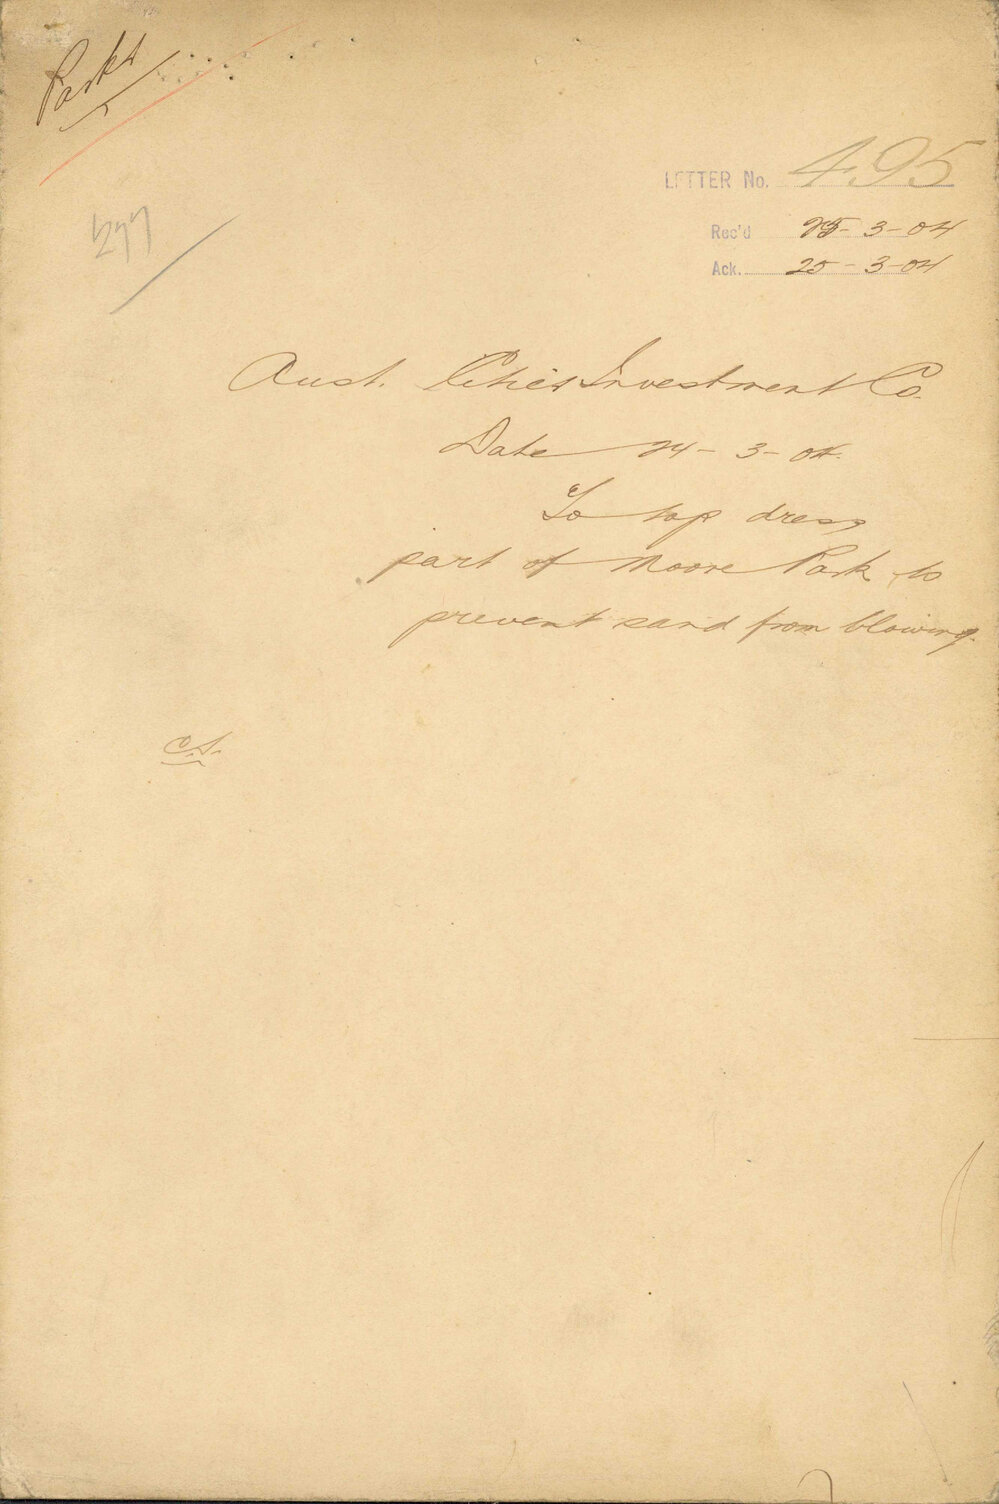 Parks
LETTER No. 495
277
Rec'd 25-3-04
Ack. 25-3-04
Aust. Cities Investment Co.
Date 24-3-04.
To top dress
part of Moore Park to
prevent sand from blowing.